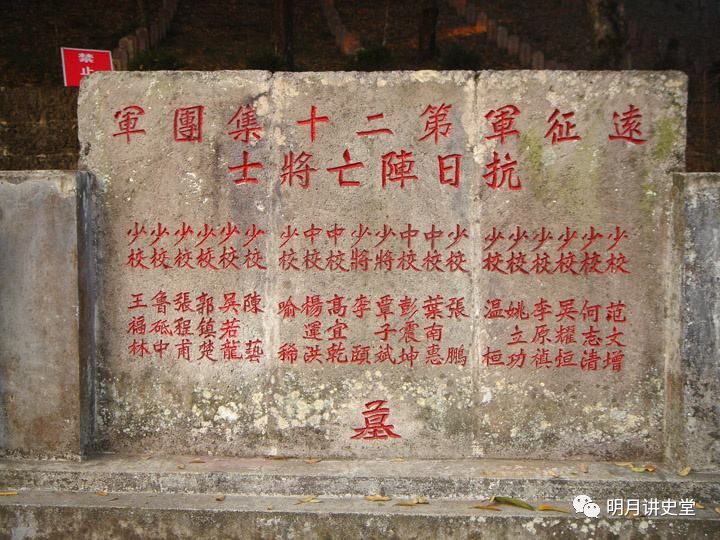 遠征軍第二十集團軍
抗日陣亡將士
少校 范文增
少校 何志清
少校 吳耀恒
少校 李原
少校 姚立功
少校 温桓
少校 張鵬
中校 葉南惠
中校 彭震坤
少將 覃子斌
少將 李頤
中校 高宜乾
中校 楊運洪
少校 喻稀
少校 陳藝
少校 吳若龍
少校 郭鎮楚
少校 張程甫
少校 魯砥中
少校 王福林
墓
禁止
明月讲史堂